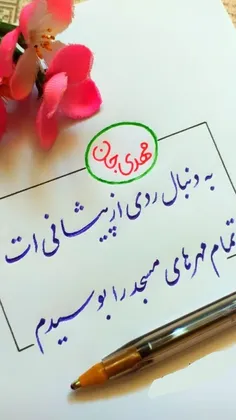 مهدی جان
به دنبال ردی از پیشانی ات
تمام مهرهای مسجد را بوسیدم